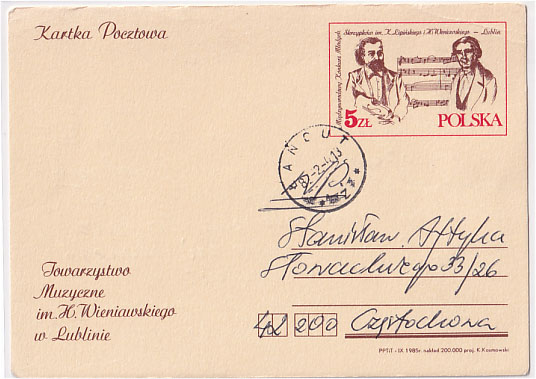 Kartka Pocztowa
Międzynarodowy Konkurs Młodych
Skrzypków im. K. Lipińskiego i H. Wieniawskiego – Lublin
5 ZŁ
POLSKA
ŁAŃCUT
Stanisław
Słowackiego 33/26
42 200 Częstochowa
Towarzystwo
Muzyczne
im. H. Wieniawskiego
w Lublinie
PPTiT - IX. 1985r. nakład 200.000 proj. K. Kosmowski